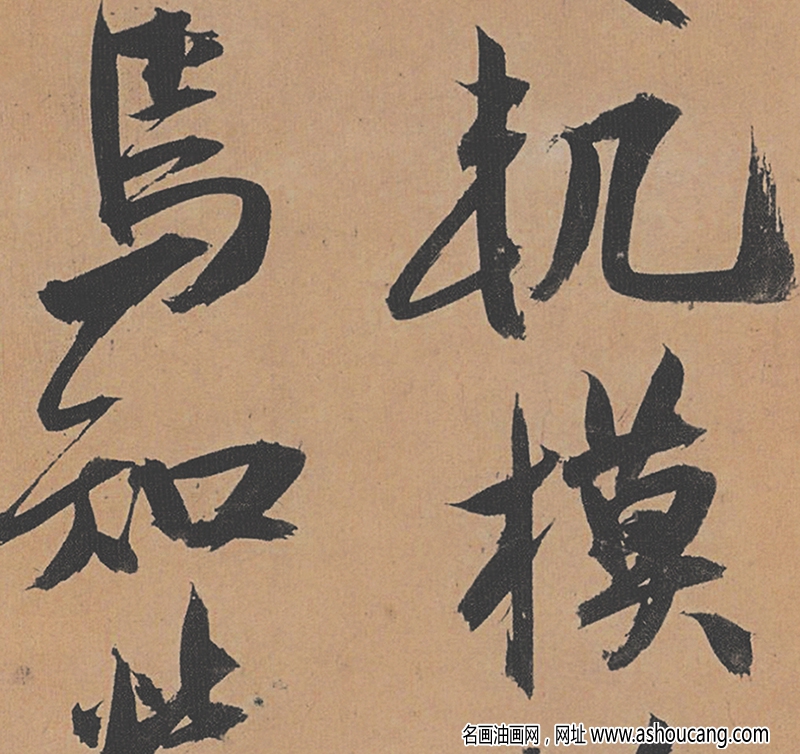 机模
馬知此
名画油画网，网址 www.ashoucang.com